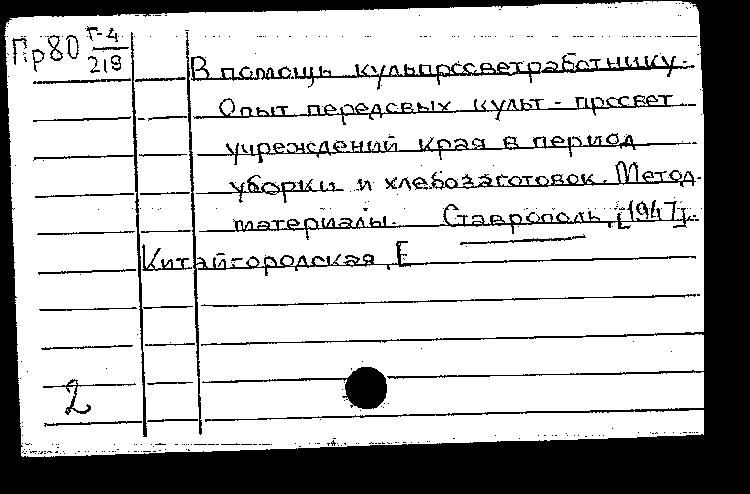 Пр80 Г-4/218
В помощь культпросветработнику.
Опыт передовых культ-просвет
учреждений края в период
уборки и хлебозаготовок. Метод.
материалы. Ставрополь, [1947].
Китайгородская, Е
2